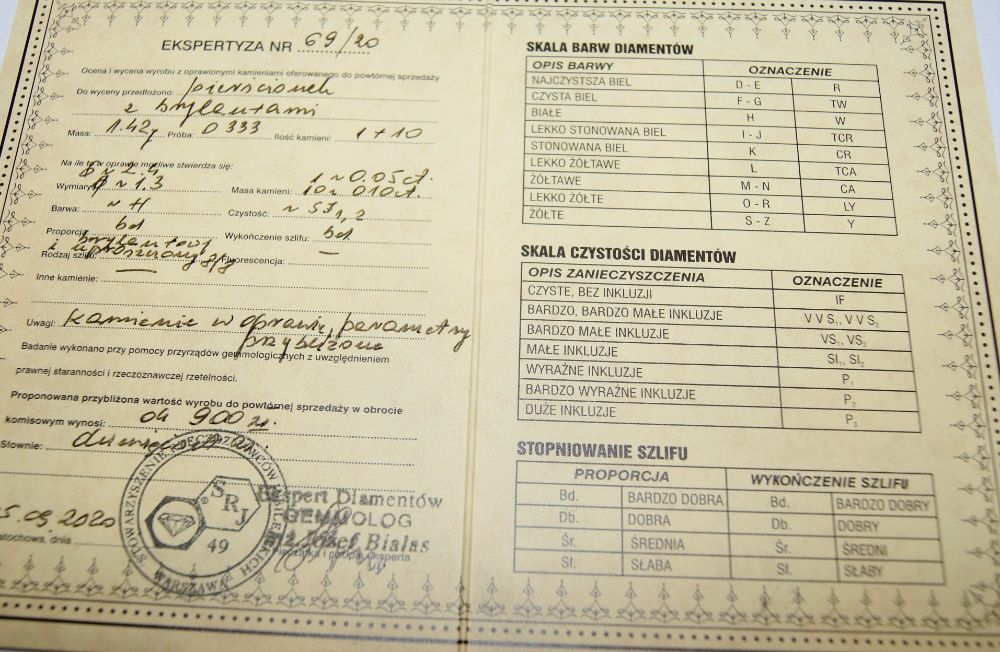 EKSPERTYZA NR 69/20
Ocena i wycena wyrobu z oprawionymi kamieniami oferowanego do powtórnej sprzedaży
Do wyceny przedłożono: pierścionek
z brylantami
Masa: 1.42g Próba: 0 333 Ilość kamieni: 1 + 10
Na ile to w oprawie możliwe stwierdza się:
ϕ ~ 2.4 1 ~ 0.05 ct.
Wymiary: ϕ ~ 1.3 Masa kamieni: 10 ~ 0.10 ct.
Barwa: ~ H Czystość: ~ SI 1,2
Proporcja: bd Wykończenie szlifu: bd
brylantowy
Rodzaj szlifu: i uproszczony 8/8 Fluorescencja: —
Inne kamienie: —
Uwagi: Kamienie w oprawie, parametry
przybliżone
Badanie wykonano przy pomocy przyrządów gemmologicznych z uwzględnieniem
prawnej staranności i rzeczoznawczej rzetelności.
Proponowana przybliżona wartość wyrobu do powtórnej sprzedaży w obrocie
komisowym wynosi: ok 900 zł.
Słownie:
5.09.2020
stochowa, dnia
STOWARZYSZENIE RZECZOZNAWCÓW JUBILERSKICH
WARSZAWA
SRJ
49
Ekspert Diamentów
GEMMOLOG
Józef Białas
Pieczątka i podpis eksperta
SKALA BARW DIAMENTÓW
OPIS BARWY OZNACZENIE
NAJCZYSTSZA BIEL D - E R
CZYSTA BIEL F - G TW
BIAŁE H W
LEKKO STONOWANA BIEL I - J TCR
STONOWANA BIEL K CR
LEKKO ŻÓŁTAWE L TCA
ŻÓŁTAWE M - N CA
LEKKO ŻÓŁTE O - R LY
ŻÓŁTE S - Z Y
SKALA CZYSTOŚCI DIAMENTÓW
OPIS ZANIECZYSZCZENIA OZNACZENIE
CZYSTE, BEZ INKLUZJI IF
BARDZO, BARDZO MAŁE INKLUZJE V V S₁, V V S₂
BARDZO MAŁE INKLUZJE VS₁, VS₂
MAŁE INKLUZJE SI₁, SI₂
WYRAŹNE INKLUZJE P₁
BARDZO WYRAŹNE INKLUZJE P₂
DUŻE INKLUZJE P₃
STOPNIOWANIE SZLIFU
PROPORCJA WYKOŃCZENIE SZLIFU
Bd. BARDZO DOBRA Bd. BARDZO DOBRY
Db. DOBRA Db. DOBRY
Śr. ŚREDNIA Śr. ŚREDNI
Sł. SŁABA Sł. SŁABY